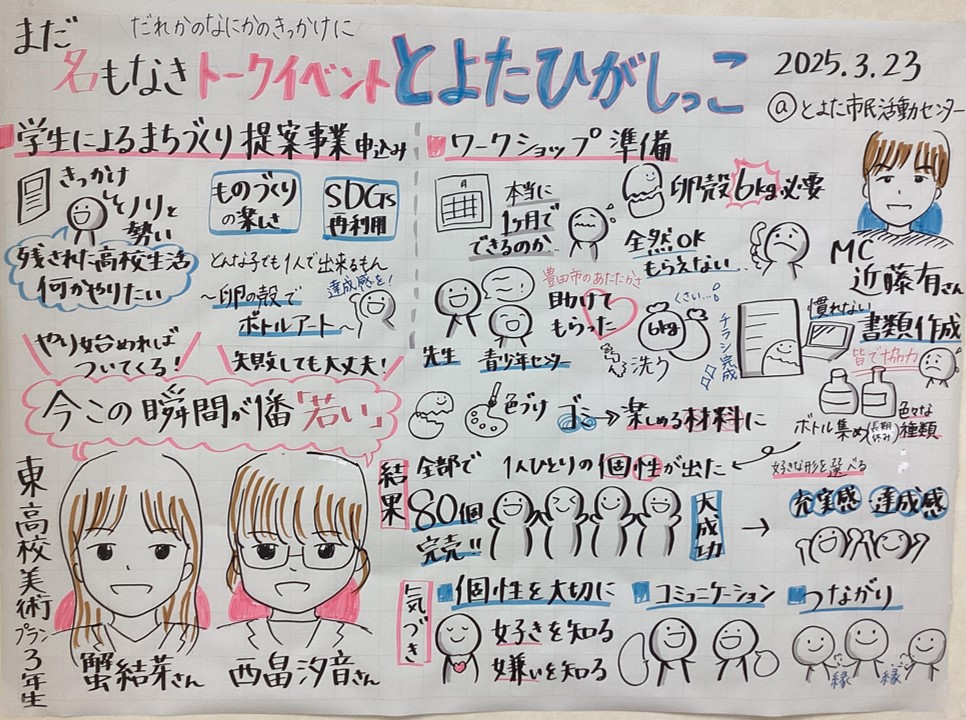 だれかのなにかのきっかけに
まだ
名もなきトークイベントとよたひがしっこ
2025.3.23
@とよた市民活動センター
学生によるまちづくり提案事業申込み
きっかけ
ノリと
勢い
ものづくり
の楽しさ
SDGs
再利用
残された高校生活
何かやりたい
どんな子でも1人で出来るもん
達成感を!
〜卵の殻で
ボトルアート〜
やり始めれば
ついてくる!
失敗しても大丈夫!
今この瞬間が1番「若い」
東高校美術プラン3年生
蟹結芽さん
西畠汐音さん
ワークショップ準備
本当に
1ヶ月で
できるのか…
卵殻6kg必要
全然OK
もらえない…
MC
近藤有さん
先生
青少年センター
豊田市のあたたかさ
助けて
もらった
くさい…
6kg
洗う
チラシ完成
慣れない
書類作成
皆で協力
色づけ
ゴミ
楽しめる材料に
ボトル集め(長期休み)
色々な
種類
好きな形を選べる
結果
全部で
80個
完売!!
1人ひとりの個性が出た
大成功
→
充実感 達成感
気づき
個性を大切に
好きを知る
嫌いを知る
コミュニケーション
つながり
縁
縁